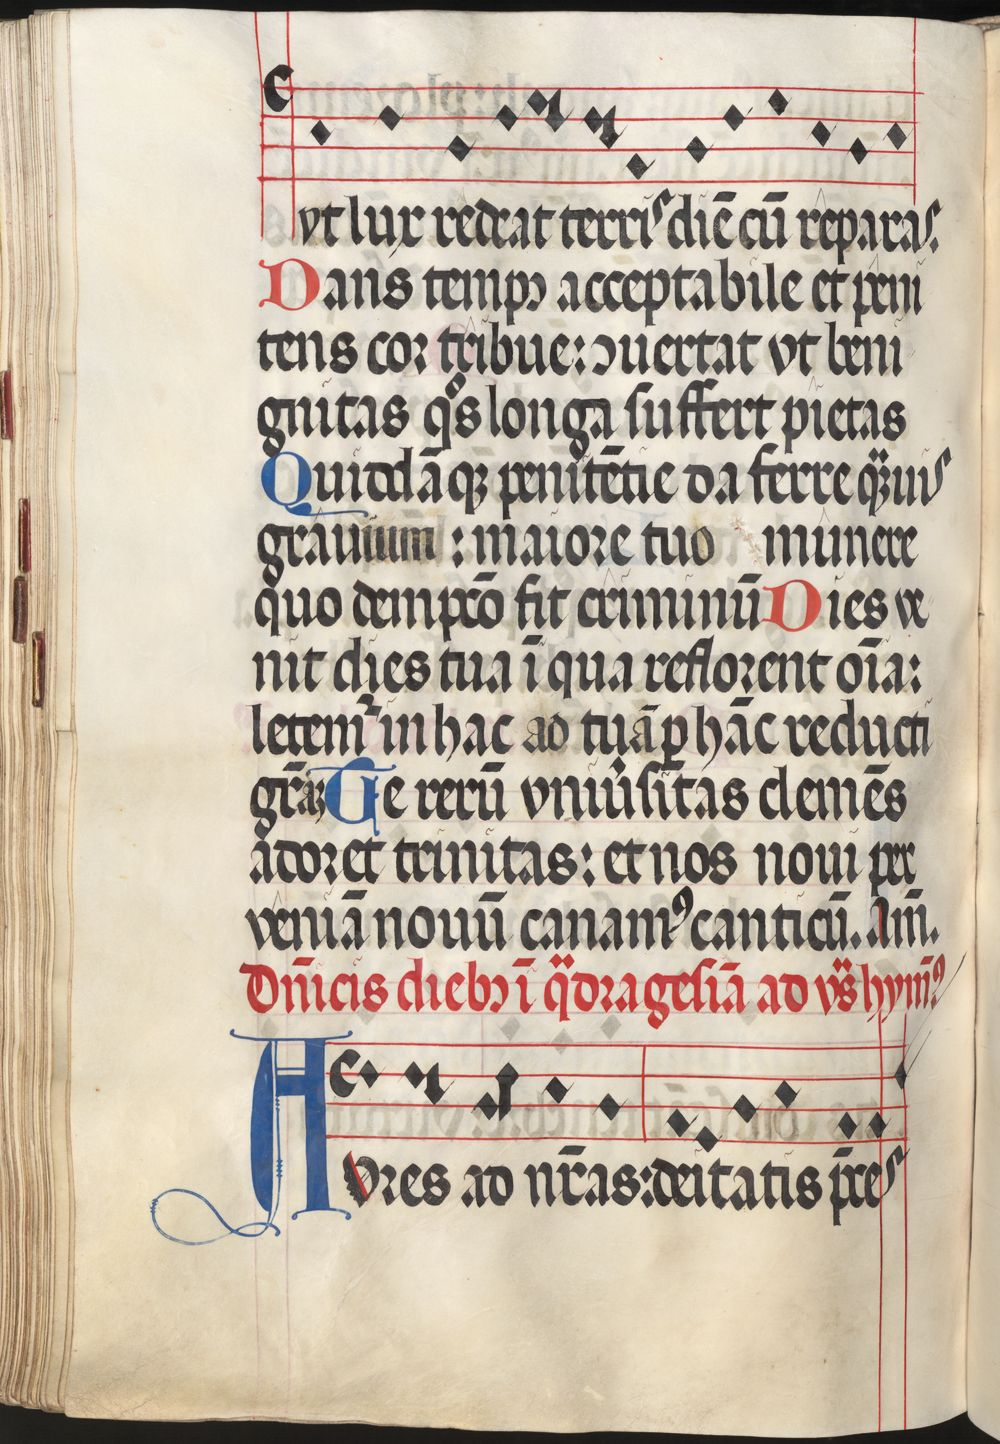 vt lux redeat terris diē cū reparas.
Dans tempꝰ acceptabile et peni
tens cor tribue: ꝯuertat vt beni
gnitas qͦs longa suffert pietas
Quiddā qꝫ penitētie da ferre qͣuis
grauium : maiore tuo munere
quo dempcō fit criminū Dies ve
nit dies tua ī qua reflorent oīa:
letemr in hac ad tuā ꝑ hāc reducti
grāꝫ Te rerū vniūsitas clemēs
adoret trinitas: et nos noui per
veniā nouū canamꝰ canticū. Am̄.
Dn̄icis diebꝫ ī qͣdragesīa ad vs̄ hymnꝰ
Avres ad nr̄as: deitatis p̄ces